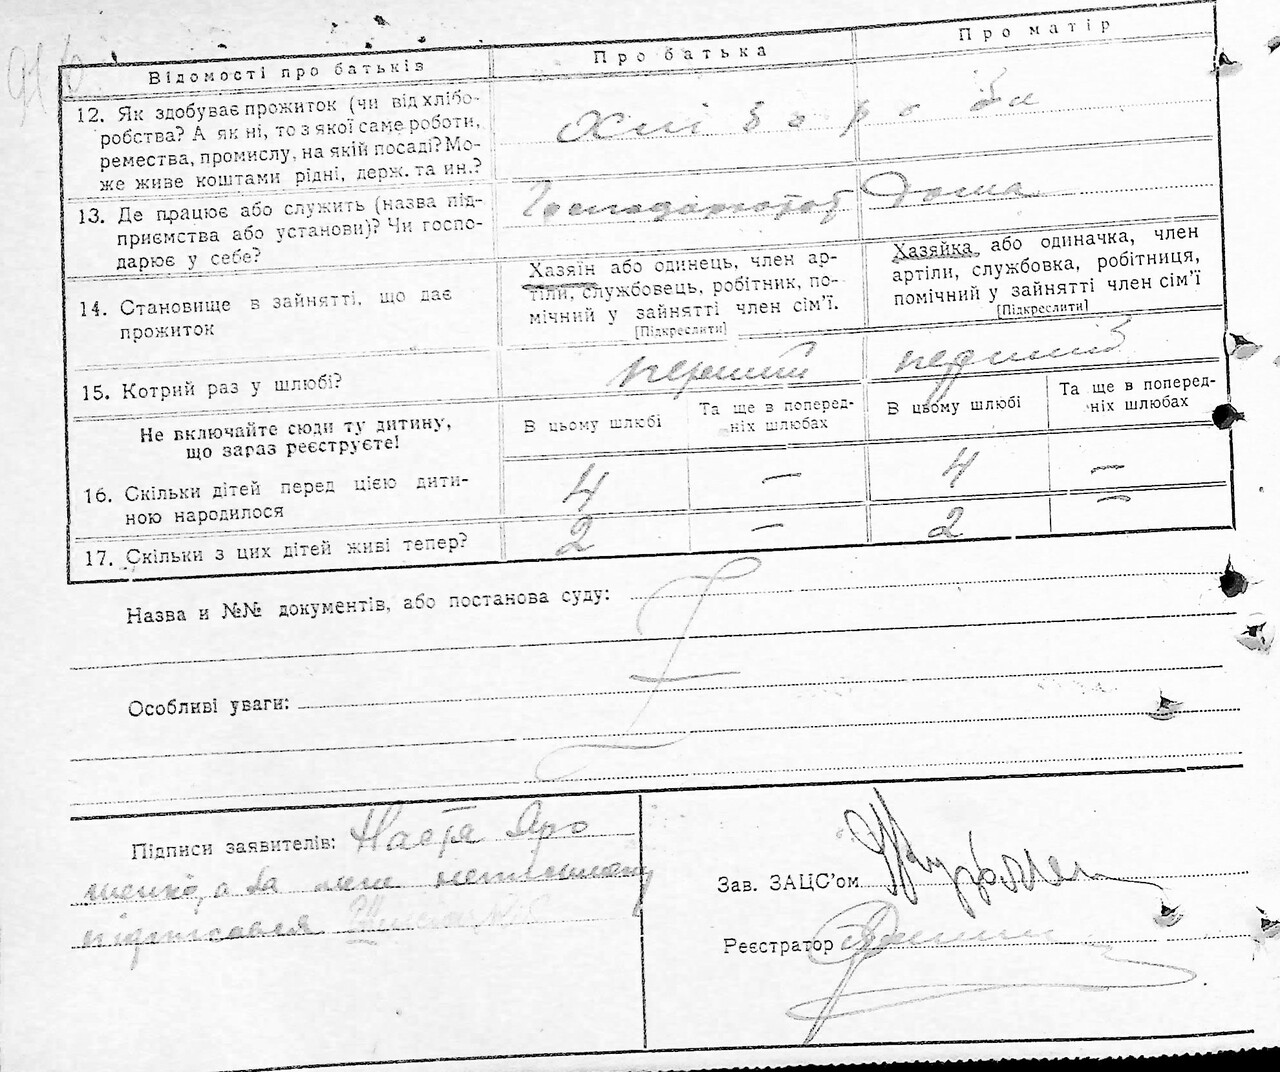 Відомості про батьків
Про батька
Про матір
12. Як здобуває прожиток (чи від хлібо-
робства? А як ні, то з якої саме роботи,
ремества, промислу, на якій посаді? Мо-
же живе коштами рідні, держ. та ин.?
Хлібороби
13. Де працює або служить (назва під-
приємства або установи)? Чи госпо-
дарює у себе?
дома
14. Становище в зайнятті, що дає
прожиток
Хазяїн або одинець, член ар-
тіли, службовець, робітник, по-
мічний у зайнятті член сім'ї.
[Підкреслити]
Хазяйка або одиначка, член
артіли, службовка, робітниця,
помічний у зайнятті член сім'ї
[Підкреслити]
15. Котрий раз у шлюбі?
перший
перший
Не включайте сюди ту дитину,
що зараз реєструєте!
В цьому шлюбі
Та ще в поперед-
ніх шлюбах
В цьому шлюбі
Та ще в поперед-
ніх шлюбах
16. Скільки дітей перед цією дити-
ною народилося
4 — 4 —
17. Скільки з цих дітей живі тепер?
2 — 2 —
Назва и №№ документів, або постанова суду:
Особливі уваги:
Підписи заявителів: Настя Яро
шенко, а за неи неписьмену
підписався
Зав. ЗАЦС'ом
Реєстратор